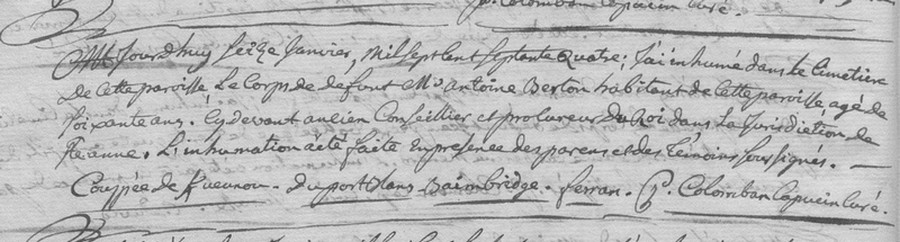 P. Colomban Capucin Curé.
Aujourdhuy seize Janvier, Mil sept cent septante quatre; J'ai inhumé dans le Cimetiere
de cette paroisse Le Corps de defunt Mr. Antoine Berton habitant de cette paroisse agé de
soixante ans. Cy devant ancien Conseillier et procureur du Roi dans La Jurisdiction de
L'inhumation a été faite En presence des parens et des témoins sous signés.
Couppée de Duportdlans Baimbridge. ferran. P. Colomban Capucin Curé.